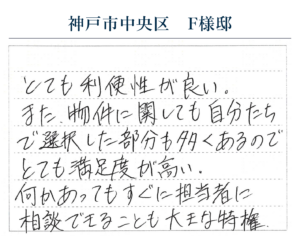 神戸市中央区 F様邸
とても利便性が良い。
また、物件に関しても自分たち
で選択した部分も多くあるので
とても満足度が高い。
何かあってもすぐに担当者に
相談できることも大きな特権